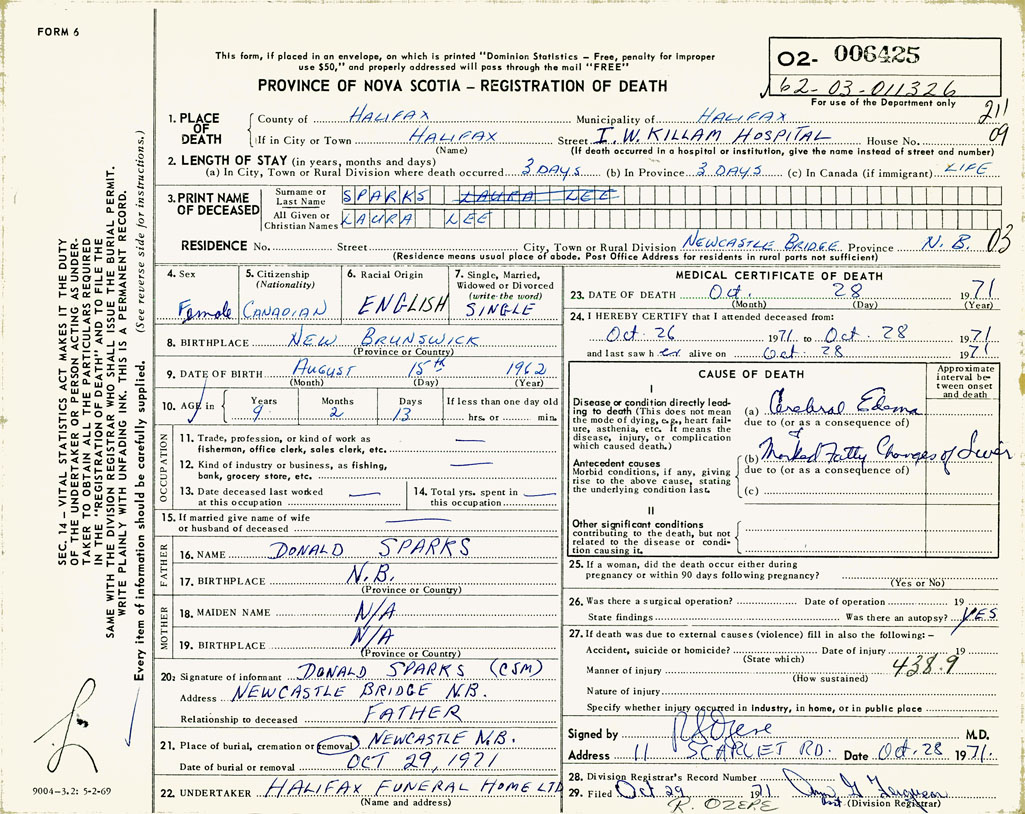 FORM 6
This form, if placed in an envelope, on which is printed "Dominion Statistics – Free, penalty for improper
use $50," and properly addressed will pass through the mail "FREE"
PROVINCE OF NOVA SCOTIA – REGISTRATION OF DEATH
O2- 006425
62-03-011326
For use of the Department only
211
09
1. PLACE OF DEATH
County of HALIFAX Municipality of HALIFAX
If in City or Town HALIFAX Street I.W. KILLAM HOSPITAL House No.
(Name) (If death occurred in a hospital or institution, give the name instead of street and number)
2. LENGTH OF STAY (in years, months and days)
(a) In City, Town or Rural Division where death occurred 3 DAYS (b) In Province 3 DAYS (c) In Canada (if immigrant) LIFE
3. PRINT NAME OF DECEASED
Surname or Last Name SPARKS LAURA LEE
All Given or Christian Names LAURA LEE
RESIDENCE No. Street City, Town or Rural Division NEWCASTLE BRIDGE Province N.B. 03
(Residence means usual place of abode. Post Office Address for residents in rural parts not sufficient)
4. Sex Female
5. Citizenship (Nationality) CANADIAN
6. Racial Origin ENGLISH
7. Single, Married, Widowed or Divorced (write the word) SINGLE
8. BIRTHPLACE NEW BRUNSWICK
(Province or Country)
9. DATE OF BIRTH AUGUST 15th 1962
(Month) (Day) (Year)
10. AGE in Years 9 Months 2 Days 13 If less than one day old hrs. or min.
OCCUPATION
11. Trade, profession, or kind of work as
fisherman, office clerk, sales clerk, etc. —
12. Kind of industry or business, as fishing,
bank, grocery store, etc. —
13. Date deceased last worked
at this occupation —
14. Total yrs. spent in
this occupation —
15. If married give name of wife
or husband of deceased —
FATHER
16. NAME DONALD SPARKS
17. BIRTHPLACE N.B.
(Province or Country)
MOTHER
18. MAIDEN NAME N/A
19. BIRTHPLACE N/A
(Province or Country)
20. Signature of informant DONALD SPARKS (CSM)
Address NEWCASTLE BRIDGE N.B.
Relationship to deceased FATHER
21. Place of burial, cremation or removal NEWCASTLE N.B.
Date of burial or removal OCT 29, 1971
22. UNDERTAKER HALIFAX FUNERAL HOME LTD
(Name and address)
MEDICAL CERTIFICATE OF DEATH
23. DATE OF DEATH Oct. 28 1971
(Month) (Day) (Year)
24. I HEREBY CERTIFY that I attended deceased from:
Oct. 26 1971 to Oct. 28 1971
and last saw her alive on Oct. 28 1971
CAUSE OF DEATH
Approximate interval between onset and death
I
Disease or condition directly leading
to death (This does not mean
the mode of dying, e.g., heart failure,
asthenia, etc. It means the
disease, injury, or complication
which caused death.)
(a) Cerebral Edema
due to (or as a consequence of)
&
Antecedent causes
Morbid conditions, if any, giving
rise to the above cause, stating
the underlying condition last.
(b) Marked Fatty Changes of Liver
due to (or as a consequence of)
(c)
II
Other significant conditions
contributing to the death, but not
related to the disease or condition
causing it.
25. If a woman, did the death occur either during
pregnancy or within 90 days following pregnancy?
(Yes or No)
26. Was there a surgical operation? Date of operation 19
State findings Was there an autopsy? YES
27. If death was due to external causes (violence) fill in also the following: –
Accident, suicide or homicide? Date of injury 19
(State which)
Manner of injury 438.9
(How sustained)
Nature of injury
Specify whether injury occurred in industry, in home, or in public place
Signed by M.D.
Address 11 SCARLET RD. Date Oct. 28 1971.
28. Division Registrar's Record Number
29. Filed Oct 29 1971
(Division Registrar)
R. OZERE
SEC. 14 – VITAL STATISTICS ACT MAKES IT THE DUTY
OF THE UNDERTAKER OR PERSON ACTING AS UNDERTAKER
TO OBTAIN ALL THE PARTICULARS REQUIRED
IN THE "REGISTRATION OF DEATH" AND FILE THE
SAME WITH THE DIVISION REGISTRAR WHO SHALL ISSUE THE BURIAL PERMIT.
WRITE PLAINLY WITH UNFADING INK. THIS IS A PERMANENT RECORD.
Every item of information should be carefully supplied. (See reverse side for instructions.)
9004-3.2: 5-2-69